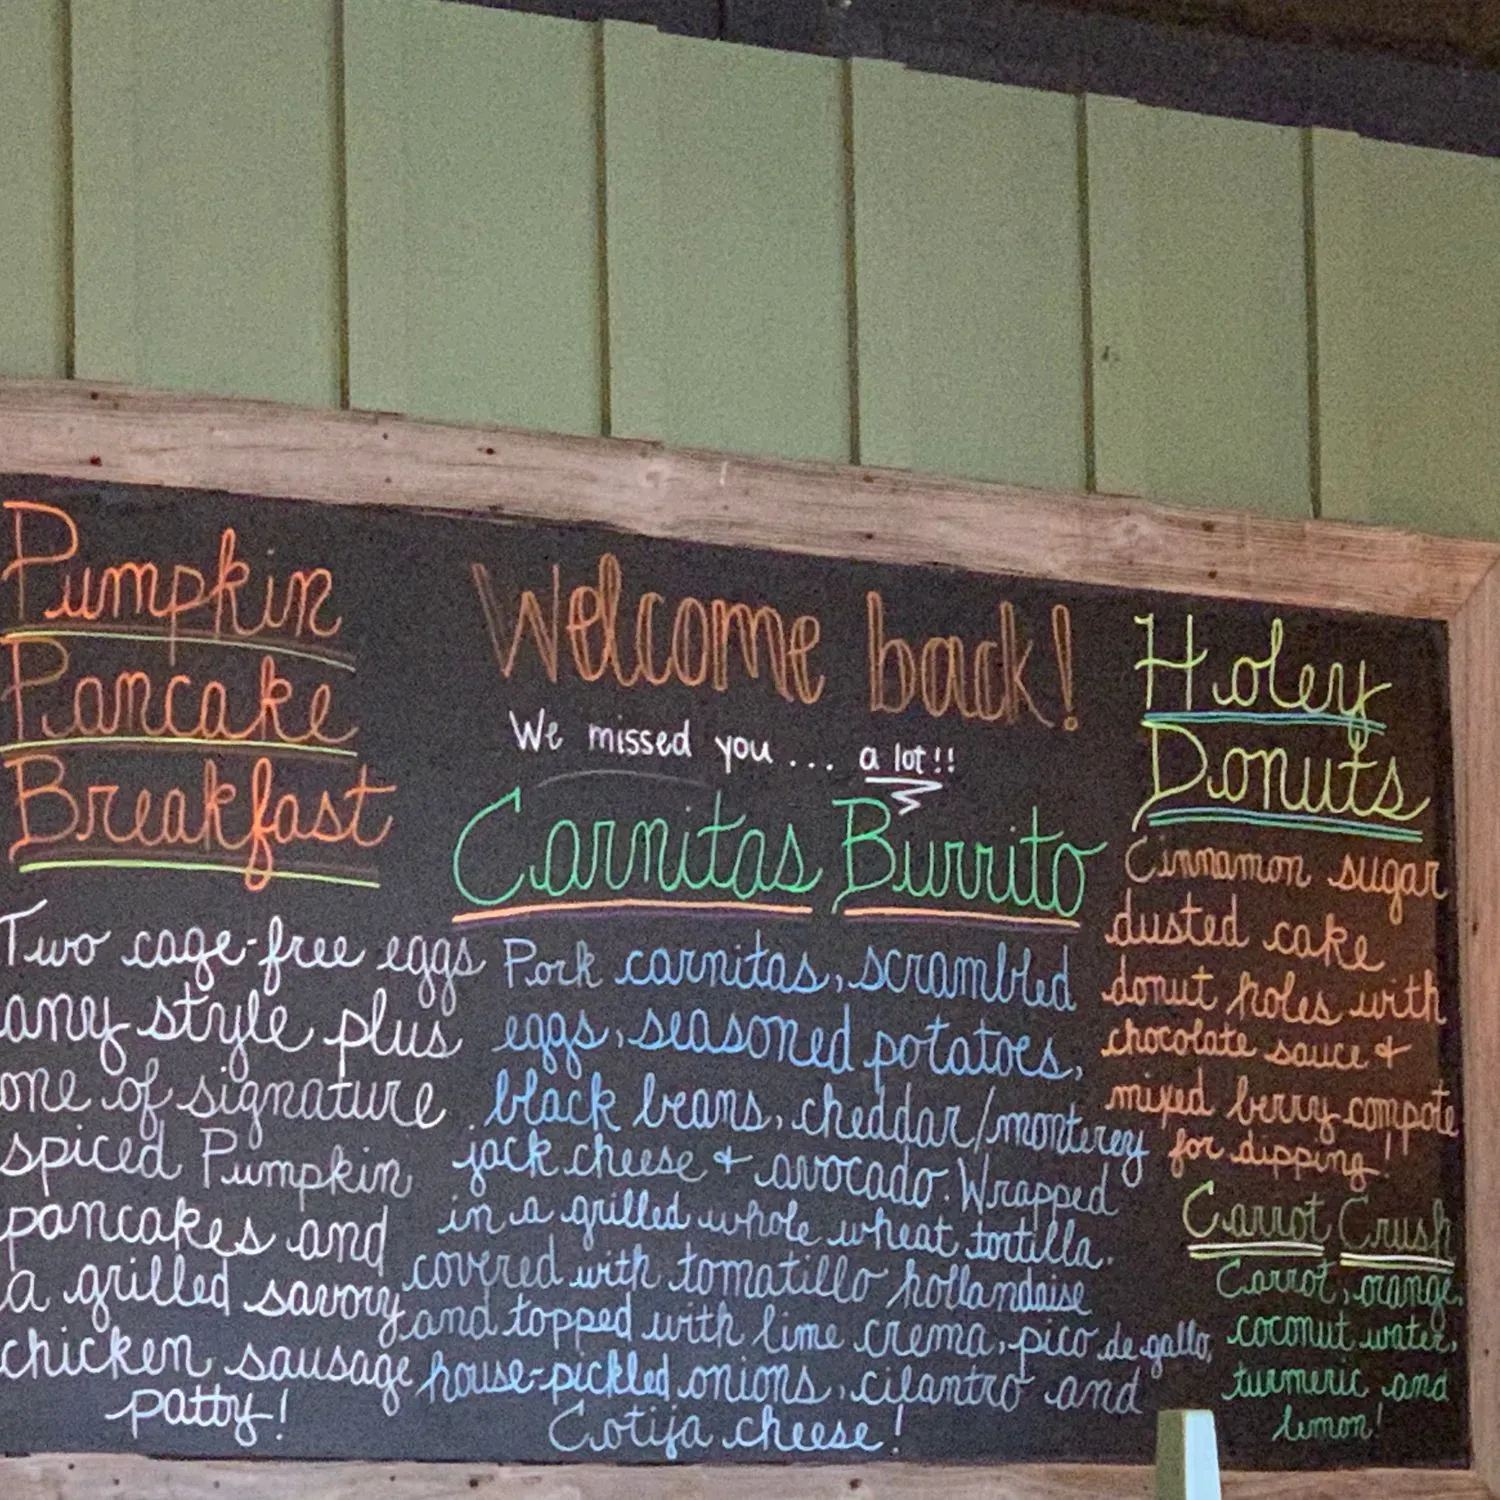 Pumpkin
Pancake
Breakfast
Two cage-free eggs
any style plus
one of signature
spiced Pumpkin
pancakes and
a grilled savory
chicken sausage
patty!
Welcome back!
We missed you... a lot!!
Carnitas Burrito
Pork carnitas, scrambled
eggs, seasoned potatoes,
black beans, cheddar/monterey
jack cheese + avocado. Wrapped
in a grilled whole wheat tortilla.
covered with tomatillo hollandaise
and topped with lime crema, pico de gallo,
house-pickled onions, cilantro and
Cotija cheese!
Holey
Donuts
Cinnamon sugar
dusted cake
donut holes with
chocolate sauce +
mixed berry compote
for dipping!
Carrot Crush
Carrot, orange,
coconut water,
turmeric and
lemon!